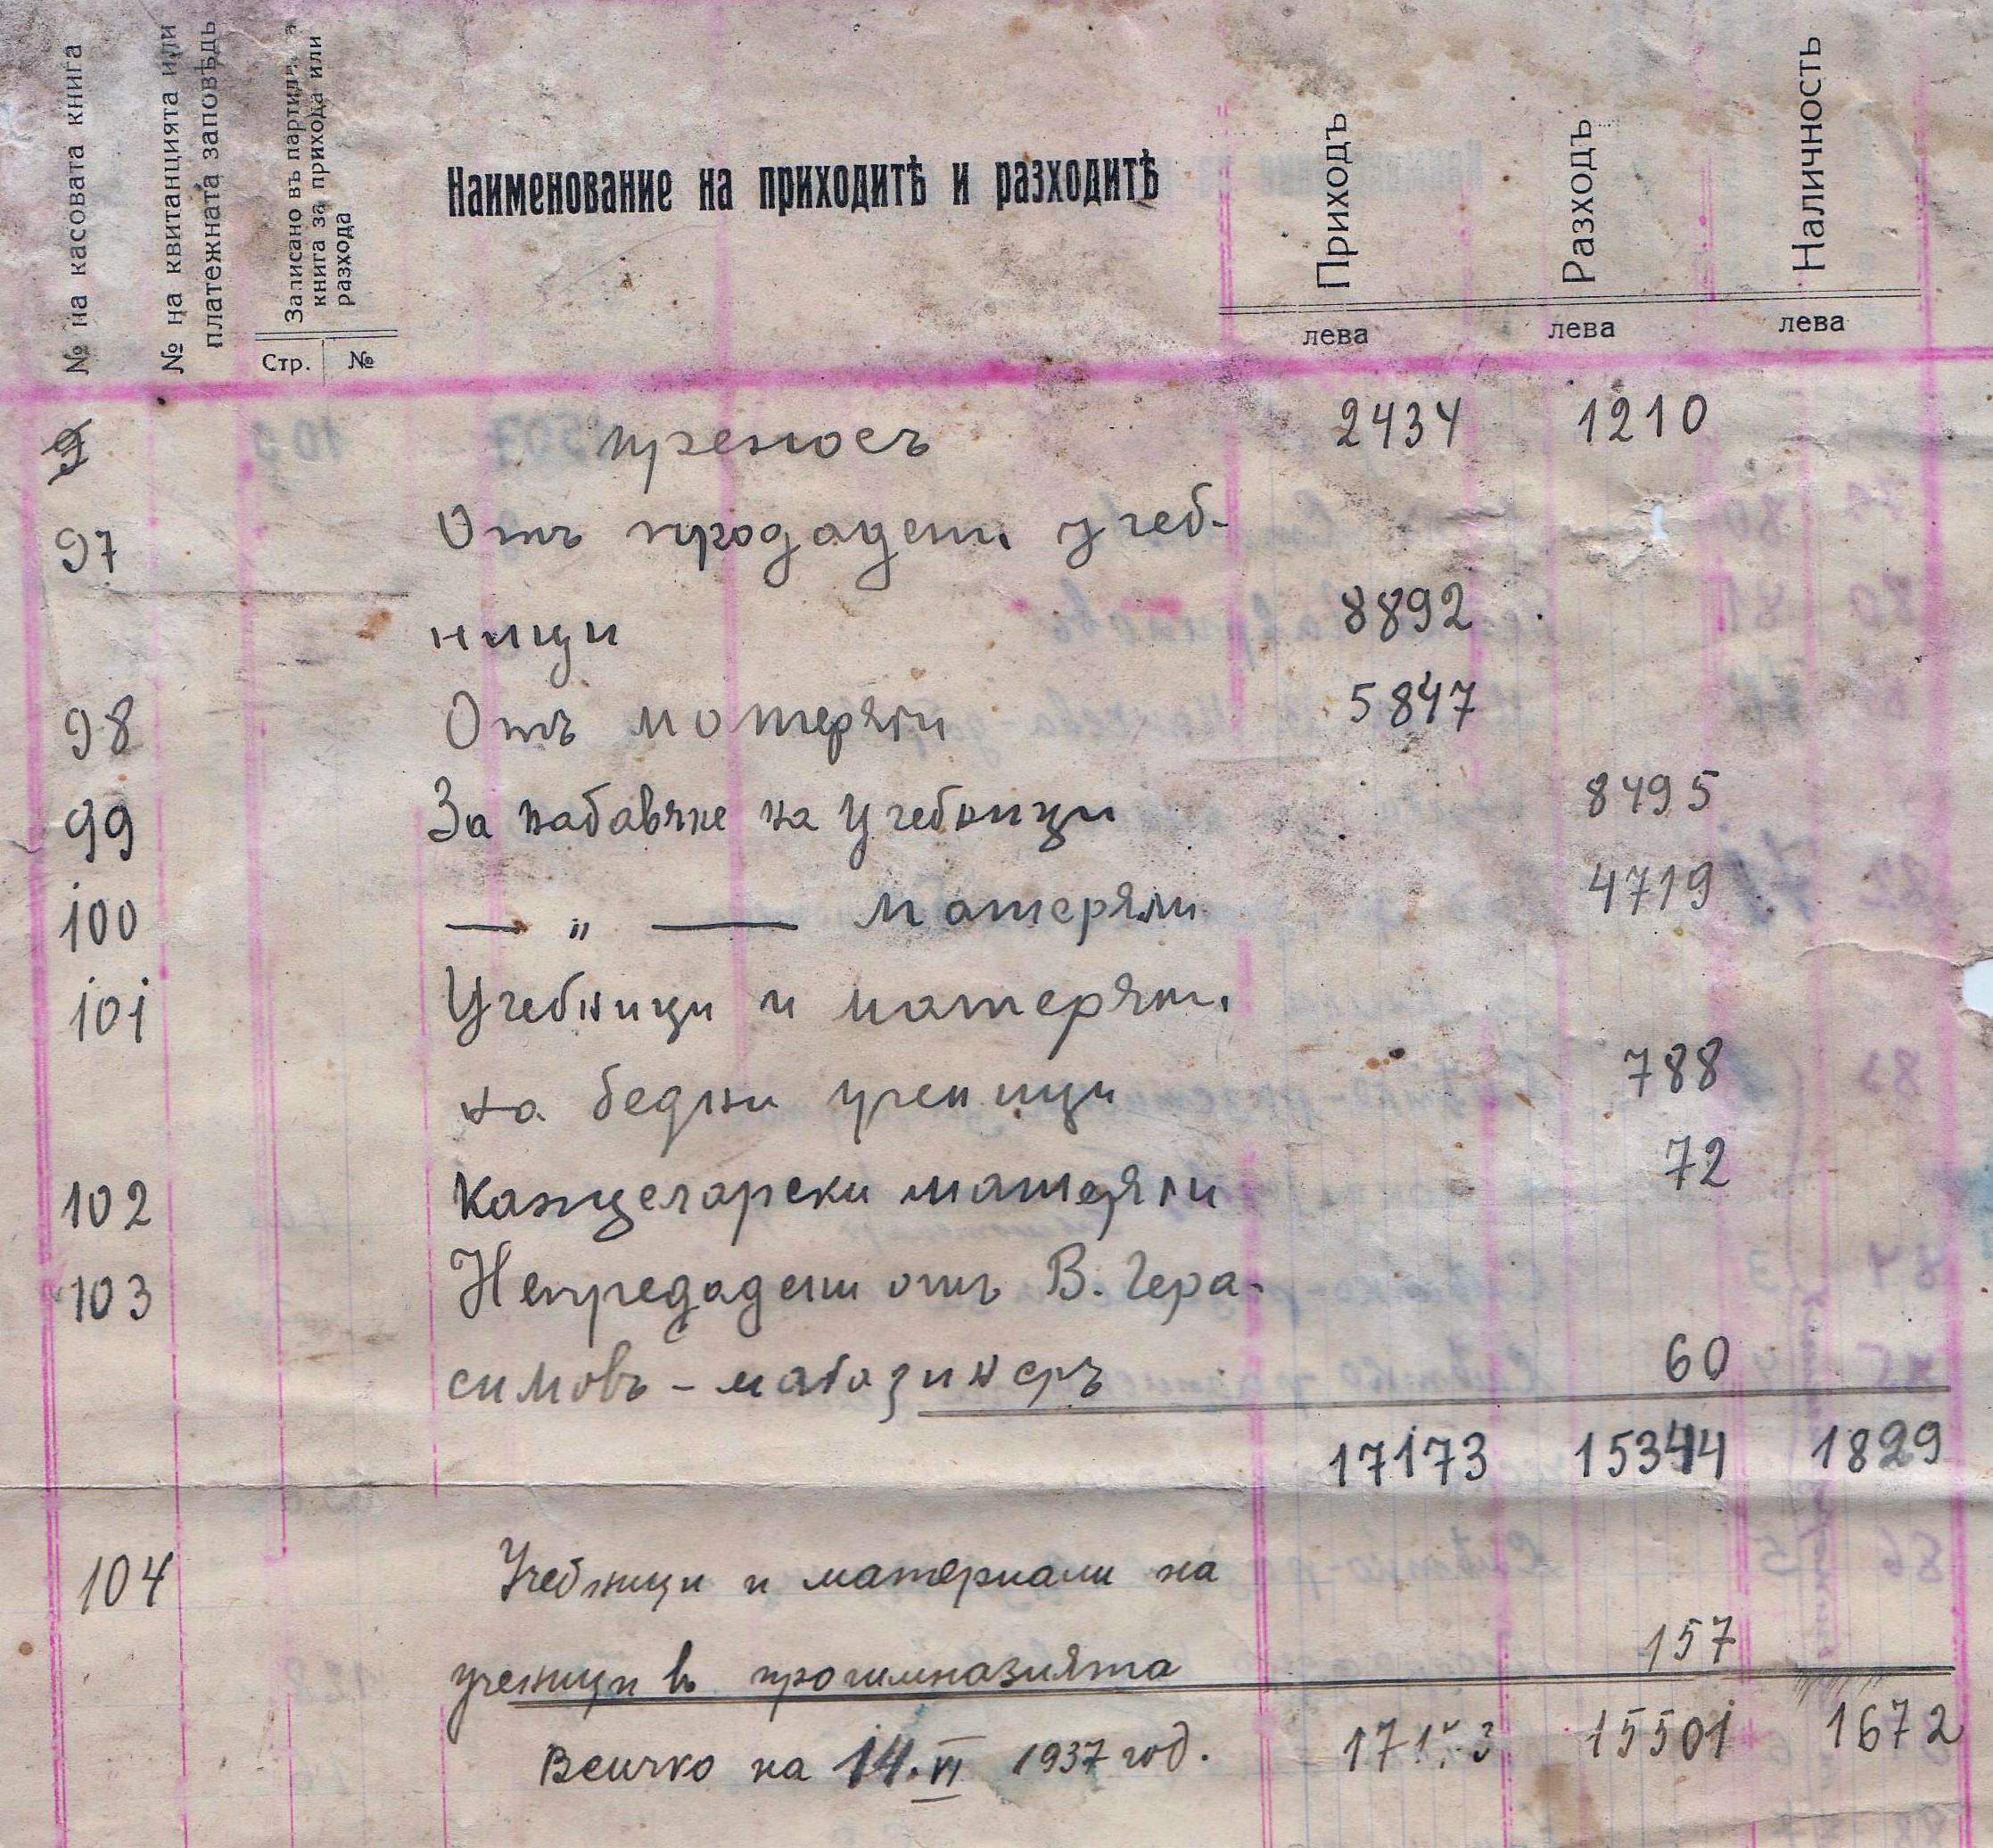 № на касовата книга
№ на квитанцията или
платежната заповѣдь
Записано въ партидн. а
книга за прихода или
разхода
Стр. №
Наименование на приходитѣ и разходитѣ
Приходъ
лева
Разходъ
лева
Наличность
лева
преносъ 2434 1210
97 Отъ продадени учеб-
ници 8892
98 Отъ матеряли 5847
99 За набавяне на учебници 8495
100 — „ — матеряли 4719
101 Учебници и матеряли
на бедни ученици 788
102 Канцеларски матеряли 72
103 Непредадени отъ В. Гера-
симовъ - магазинеръ 60
17173 15344 1829
104 Учебници и материали на
ученици въ прогимназията 157
Всичко на 14.VI 1937 год. 17173 15501 1672